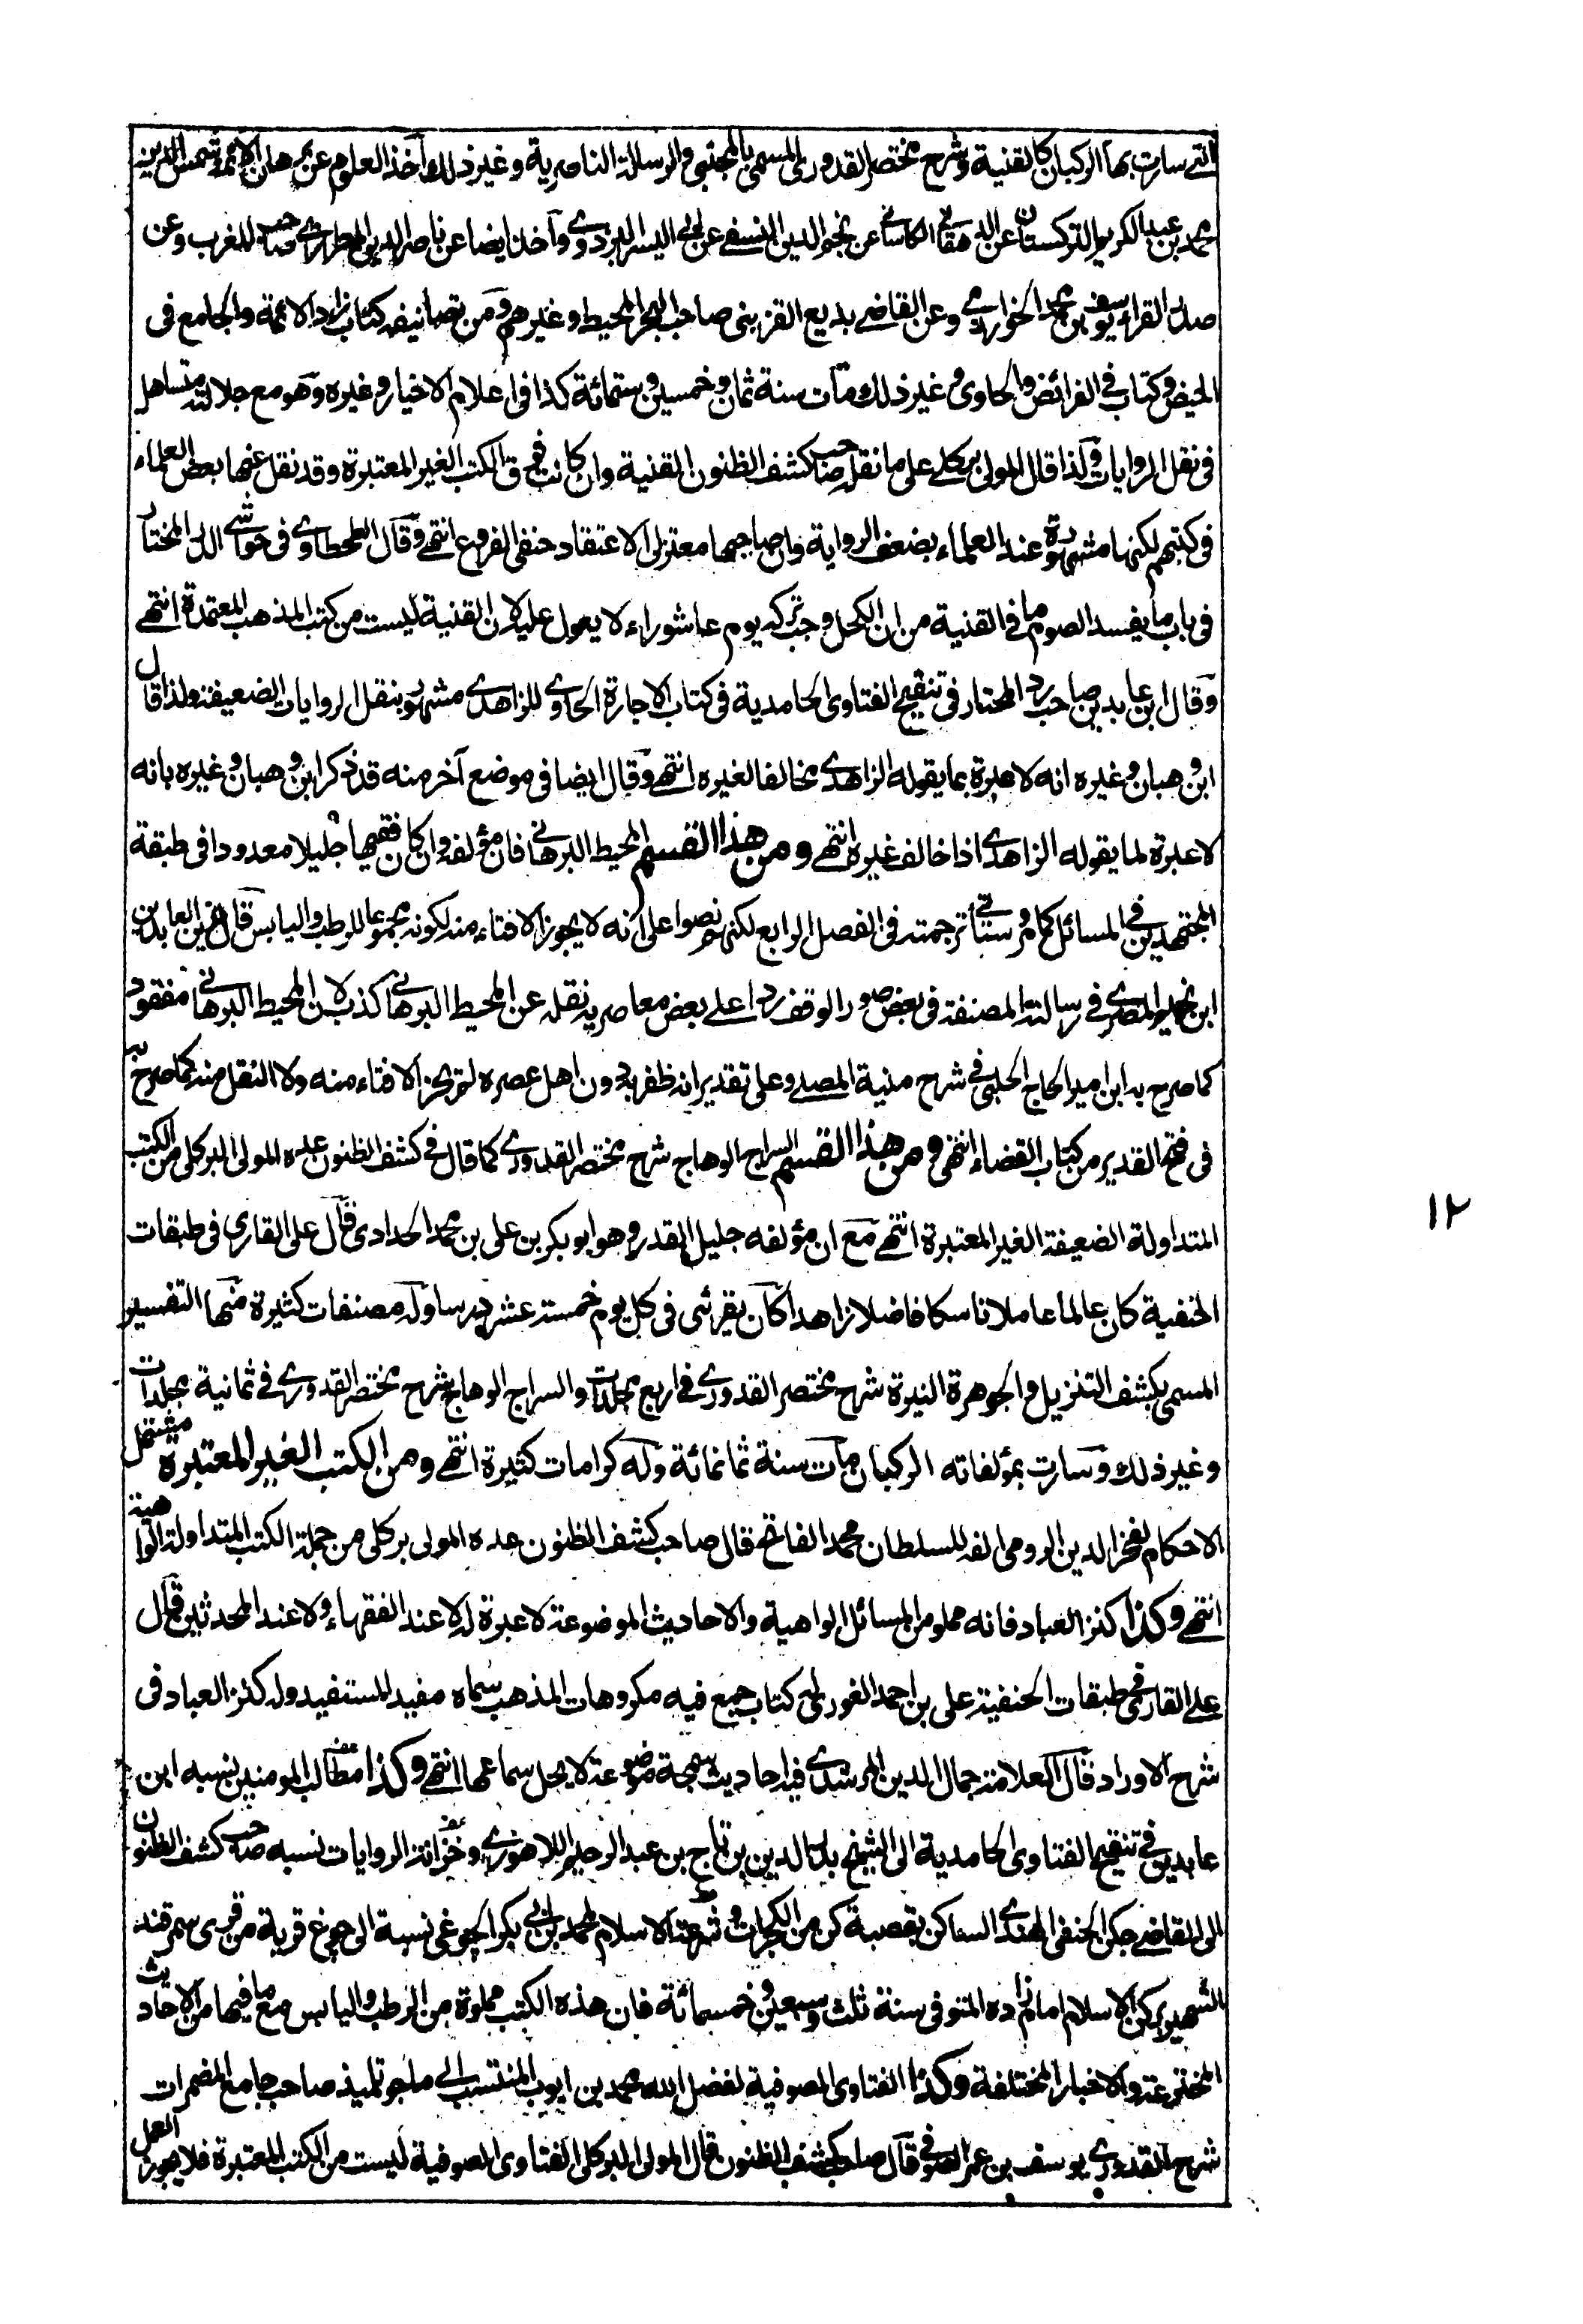 التي سارت بها الركبان كالقنية وشرح مختصر القدوري المسمى بالمجتبى والرسالة الناصرية وغير ذلك وأخذ العلوم عن برهان الائمة وشمس الدين
محمد بن عبد الكريم التركستاني عن الدهقان الكاساني عن نجم الدين النسفي عن ابي اليسر البزدوي وأخذ ايضا عن ناصر الدين المطرزي صاحب المغرب وعن
صدر القراء يوسف بن محمد الخوارزمي وعن القاضي بديع القزبني صاحب البحر المحيط وغيرهم ومن تصانيفه كتاب زاد الائمة والجامع في
الحيض وكتاب في الفرائض والحاوي وغير ذلك مات سنة ثمان وخمسين وستمائة كذا في اعلام الاخيار وغيره وهو مع جلالته متساهل
في نقل الروايات ولذا قال المولى بركلي على ما نقله صاحب كشف الظنون القنية وان كانت فوق الكتب الغير المعتبرة وقد نقل عنها بعض العلماء
في كتبهم لكنها مشهورة عند العلماء بضعف الرواية وان صاحبها معتزلي الاعتقاد حنفي الفروع انتهى وقال الطحطاوي في حواشي الدر المختار
في باب ما يفسد الصوم ما في القنية من ان الكحل وجب تركه يوم عاشوراء لا يعول عليه لان القنية ليست من كتب المذهب المعتمدة انتهى
وقال ابن عابدين صاحب رد المحتار في تنقيح الفتاوى الحامدية في كتاب الاجارة الحاوي للزاهدي مشهور بنقل الروايات الضعيفة ولذا قال
ابن وهبان وغيره انه لا عبرة بما يقوله الزاهدي مخالفا لغيره انتهى وقال ايضا في موضع آخر منه قد ذكر ابن وهبان وغيره بانه
لا عبرة لما يقوله الزاهدي اذا خالف غيره انتهى ومن هذا القسم المحيط البرهاني فان مؤلفه وان كان فقيها جليلا معدودا في طبقة
المجتهدين في المسائل كما مر وستأتي ترجمته في الفصل الرابع لكنهم نصوا على انه لا يجوز الافتاء منه لكونه مجموعا للرطب واليابس قال زين العابدين
ابن نجيم المصري في رسالته المصنفة في بعض صور الوقف ردا على بعض معاصريه نقله عن المحيط البرهاني كذب لان المحيط البرهاني مفقود
كما صرح به ابن امير الحاج الحلبي في شرح منية المصلي وعلى تقدير انه ظفر به دون اهل عصره لم يجز الافتاء منه ولا النقل منه كما صرح به
في فتح القدير من كتاب القضاء انتهى ومن هذا القسم السراج الوهاج شرح مختصر القدوري كما قال في كشف الظنون عده المولى البركلي من الكتب
المتداولة الضعيفة الغير المعتبرة انتهى مع ان مؤلفه جليل القدر وهو ابو بكر بن علي بن محمد الحدادي قال علي القاري في طبقات
الحنفية كان عالما عاملا ناسكا فاضلا زاهدا كان يقرئ في كل يوم خمسة عشر درسا وله مصنفات كثيرة منها التفسير
المسمى بكشف التنزيل والجوهرة النيرة شرح مختصر القدوري في اربع مجلدات والسراج الوهاج شرح مختصر القدوري في ثمانية مجلدات
وغير ذلك وسارت بمؤلفاته الركبان مات سنة ثمانمائة وله كرامات كثيرة انتهى ومن الكتب الغير المعتبرة مشتمل
الاحكام لفخر الدين الرومي الفه للسلطان محمد الفاتح قال صاحب كشف الظنون عده المولى بركلي من جملة الكتب المتداولة الواهية
انتهى وكذا كنز العباد فانه مملو من المسائل الواهية والاحاديث الموضوعة لا عبرة له لا عند الفقهاء ولا عند المحدثين قال
علي القاري في طبقات الحنفية علي بن احمد الغوري له كتاب جمع فيه مكروهات المذهب سماه مفيد المستفيد وله كنز العباد في
شرح الاوراد قال العلامة جمال الدين المرشدي فيه احاديث سمجة موضوعة لا يحل سماعها انتهى وكذا مطالب المومنين نسبه ابن
عابدين في تنقيح الفتاوى الحامدية الى الشيخ بدر الدين بن تاج بن عبد الرحيم اللاهوري وخزانة الروايات نسبه صاحب كشف الظنون
الى القاضي جكن الحنفي الهندي الساكن بقصبة كن من الكجرات وشرعة الاسلام لمحمد بن ابي بكر الجوغي نسبة الى جوغ قرية من قرى سمرقند
الشهير بركن الاسلام امام زاده المتوفى سنة ثلث وسبعين وخمسمائة فان هذه الكتب مملوة من الرطب واليابس مع ما فيها من الاحاديث
المخترعة والاخبار المختلفة وكذا الفتاوى الصوفية لفضل الله محمد بن ايوب المنتسب الى ماجو تلميذ صاحب جامع المضمرات
شرح القدوري يوسف بن عمر الصوفي قال صاحب كشف الظنون قال المولى البركلي الفتاوى الصوفية ليست من الكتب المعتبرة فلا يجوز العمل
١٢